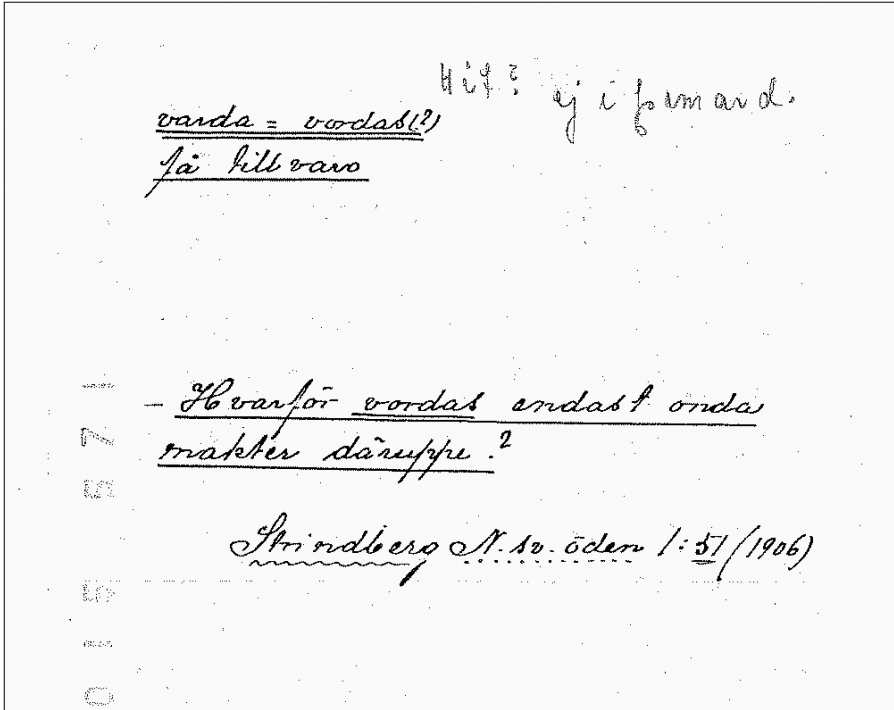 Hit? ej i formard.
varda = vordas(?)
få tillvaro
- Hvarför vordas endast onda
makter däruppe.?
Strindberg N. sv. öden 1:51 (1906)